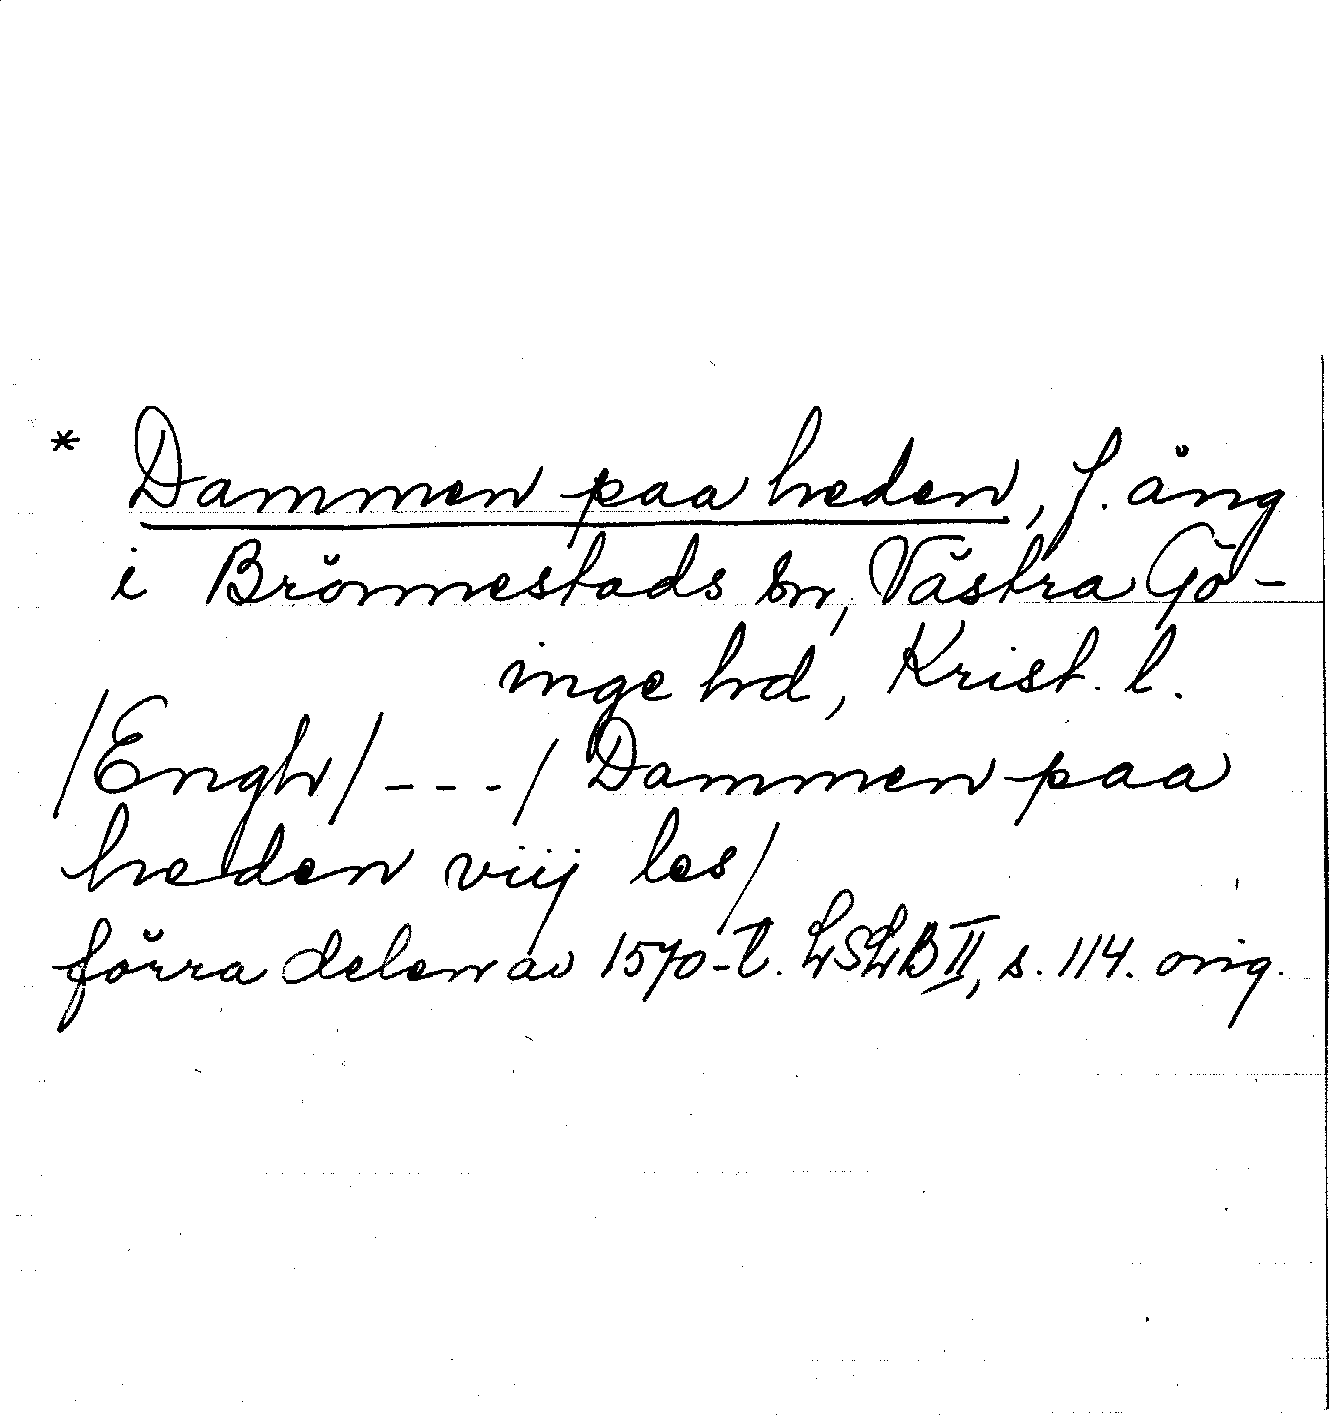 * Dammen paa heden, f. äng
i Brönnestads sn, Västra Gö-
inge hd, Krist. l.
/Engh/ --- / Dammen paa
heden viij les/
förra delen av 1570-t. LSLB II, s. 114. orig.